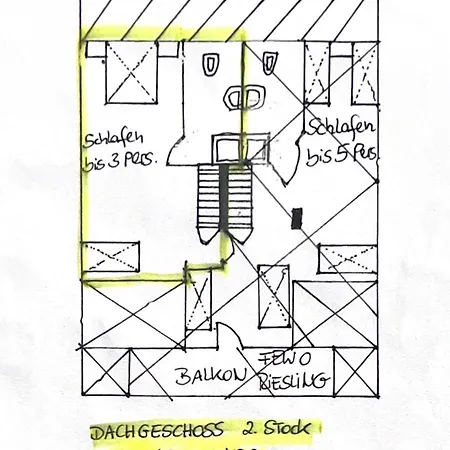 Schlafen
bis 3 Pers.
Schlafen
bis 5 Pers.
BALKON
FEWO
RIESLING
DACHGESCHOSS 2. Stock